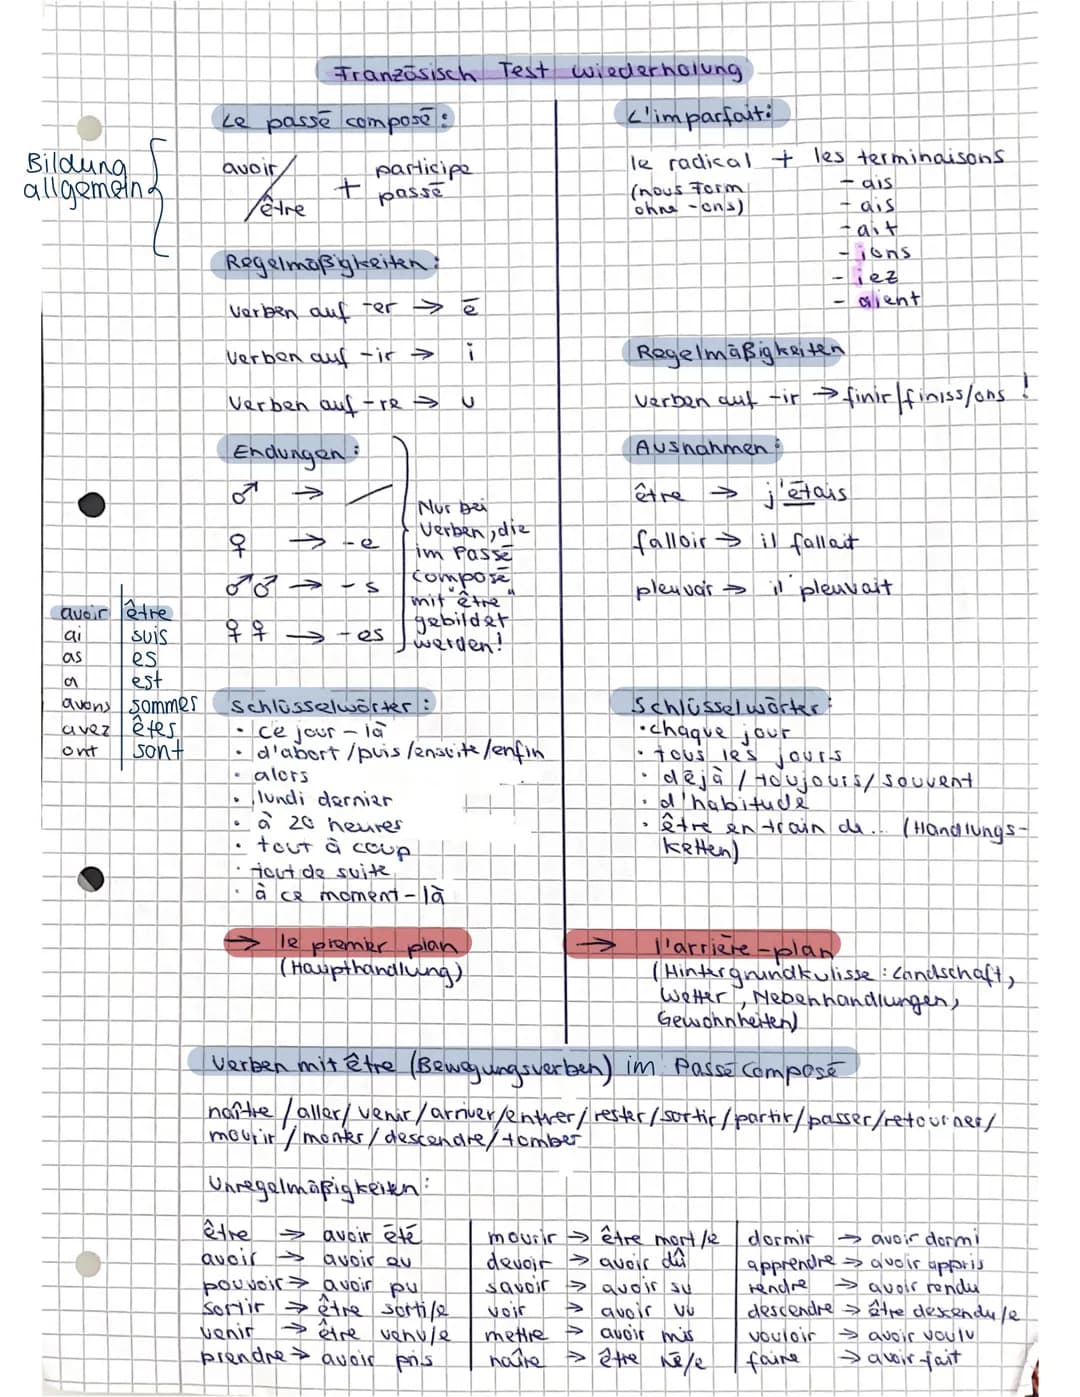 Französisch Test wiederholung
Le passé composé:
Bildung
allgemein
avoir/
/être
+
participe
passé
Regelmäßigkeiten:
Verben auf -er → é
Verben auf -ir → i
Verben auf -re → u
Endungen:
♂ →
♀ → -e
♂♂ → -s
♀♀ → -es
Nur bei
Verben, die
im Passé
composé
mit "être"
gebildet
werden!
avoir être
ai suis
as es
a est
avons sommer
avez êtes
ont sont
Schlüsselwörter:
• ce jour-là
• d'abort/puis/ensuite/enfin
• alors
• lundi dernier
• à 20 heures
• tout à coup
• tout de suite
• à ce moment-là
→ le premier plan
(Haupthandlung)
L'imparfait:
le radical + les terminaisons
(nous Form
ohne -ons)
- ais
- ais
- ait
- ions
- iez
- aient
Regelmäßigkeiten
verben auf -ir → finir/finiss/ons !
Ausnahmen:
être → j'étais
falloir → il fallait
pleuvoir → il pleuvait
Schlüsselwörter:
• chaque jour
• tous les jours
• déjà / toujours/souvent
• d'habitude
• être en train de... (Handlungs-
ketten)
→ l'arrière-plan
(Hintergrundkulisse: Landschaft,
Wetter, Nebenhandlungen,
Gewohnheiten)
Verben mit être (Bewegungsverben) im Passé composé
naître/aller/venir/arriver/entrer/rester/sortir/partir/passer/retourner/
mourir/monter/descendre/tomber
Unregelmäßigkeiten:
être → avoir été
avoir → avoir eu
pouvoir → avoir pu
sortir → être sorti/e
venir → être venu/e
prendre → avoir pris
mourir → être mort/e
devoir → avoir dû
savoir → avoir su
voir → avoir vu
mettre → avoir mis
naître → être né/e
dormir → avoir dormi
apprendre → avoir appris
rendre → avoir rendu
descendre → être descendu/e
vouloir → avoir voulu
faire → avoir fait